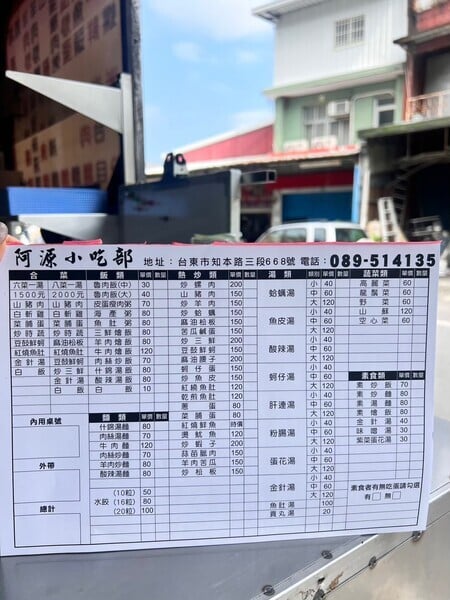 阿源小吃部 地址：台東市知本路三段668號 電話：089-514135
合菜
六菜一湯 八菜一湯
1500元 2000元
山豬肉 山豬肉
白斬雞 白斬雞
菜脯蛋 菜脯蛋
炒時蔬 炒時蔬
豆鼓鮮蚵 麻油松板
紅燒魚 豆鼓鮮蚵
金針湯 紅燒魚
白飯 炒三鮮
金針湯
白飯
內用桌號
外帶
總計
飯類 單價 數量
魯肉飯(中) 30
魯肉飯(大) 40
皮蛋瘦肉粥 70
海產粥 80
魚肚粥 80
三鮮燴飯 80
羊肉燴飯
牛肉燴飯 120
肉絲炒飯 70
什錦湯飯 80
酸辣湯飯 80
白飯 10
麵類 單價 數量
什錦湯麵 80
肉絲湯麵 70
牛肉麵 120
肉絲炒麵 70
羊肉炒麵 80
酸辣湯麵 80
水餃
(10粒) 50
(16粒) 80
(20粒) 100
熱炒類 單價 數量
炒螺肉 200
山豬肉 150
炒羊肉 150
炒蛤蠣 150
麻油松板 150
苦瓜鹹蛋 150
炒三鮮 200
豆鼓鮮蚵 150
麻油腰子 200
蚵仔蛋 150
炒魚皮 150
紅燒魚肚 120
乾煎魚肚 120
蔥蛋 80
菜脯蛋 80
紅燒鮮魚 時價
燙魷魚 120
炒蝦子 200
蒜苗臘肉 150
羊肉苦瓜 150
炒松板 150
湯類 類別 單價 數量
蛤蠣湯 小 40 中 60 大 120
魚皮湯 小 40 中 60 大 120
酸辣湯 小 40 中 60 大 120
蚵仔湯 小 40 中 60 大 120
肝連湯 小 40 中 60 大 120
粉腸湯 小 40 中 60 大 120
蛋花湯 小 40 中 60 大 120
金針湯 小 40 中 60 大 120
魚肚湯 100
貢丸湯 20
蔬菜類 單價 數量
高麗菜 60
龍鬚菜 60
野菜 60
山蘇 120
空心菜 60
素食類 單價 數量
素炒飯 70
素炒麵 80
素湯麵 80
素燴飯 80
金針湯 40
味噌湯 30
紫菜蛋花湯 30
素食者有無吃蛋請勾選
有□ 無□